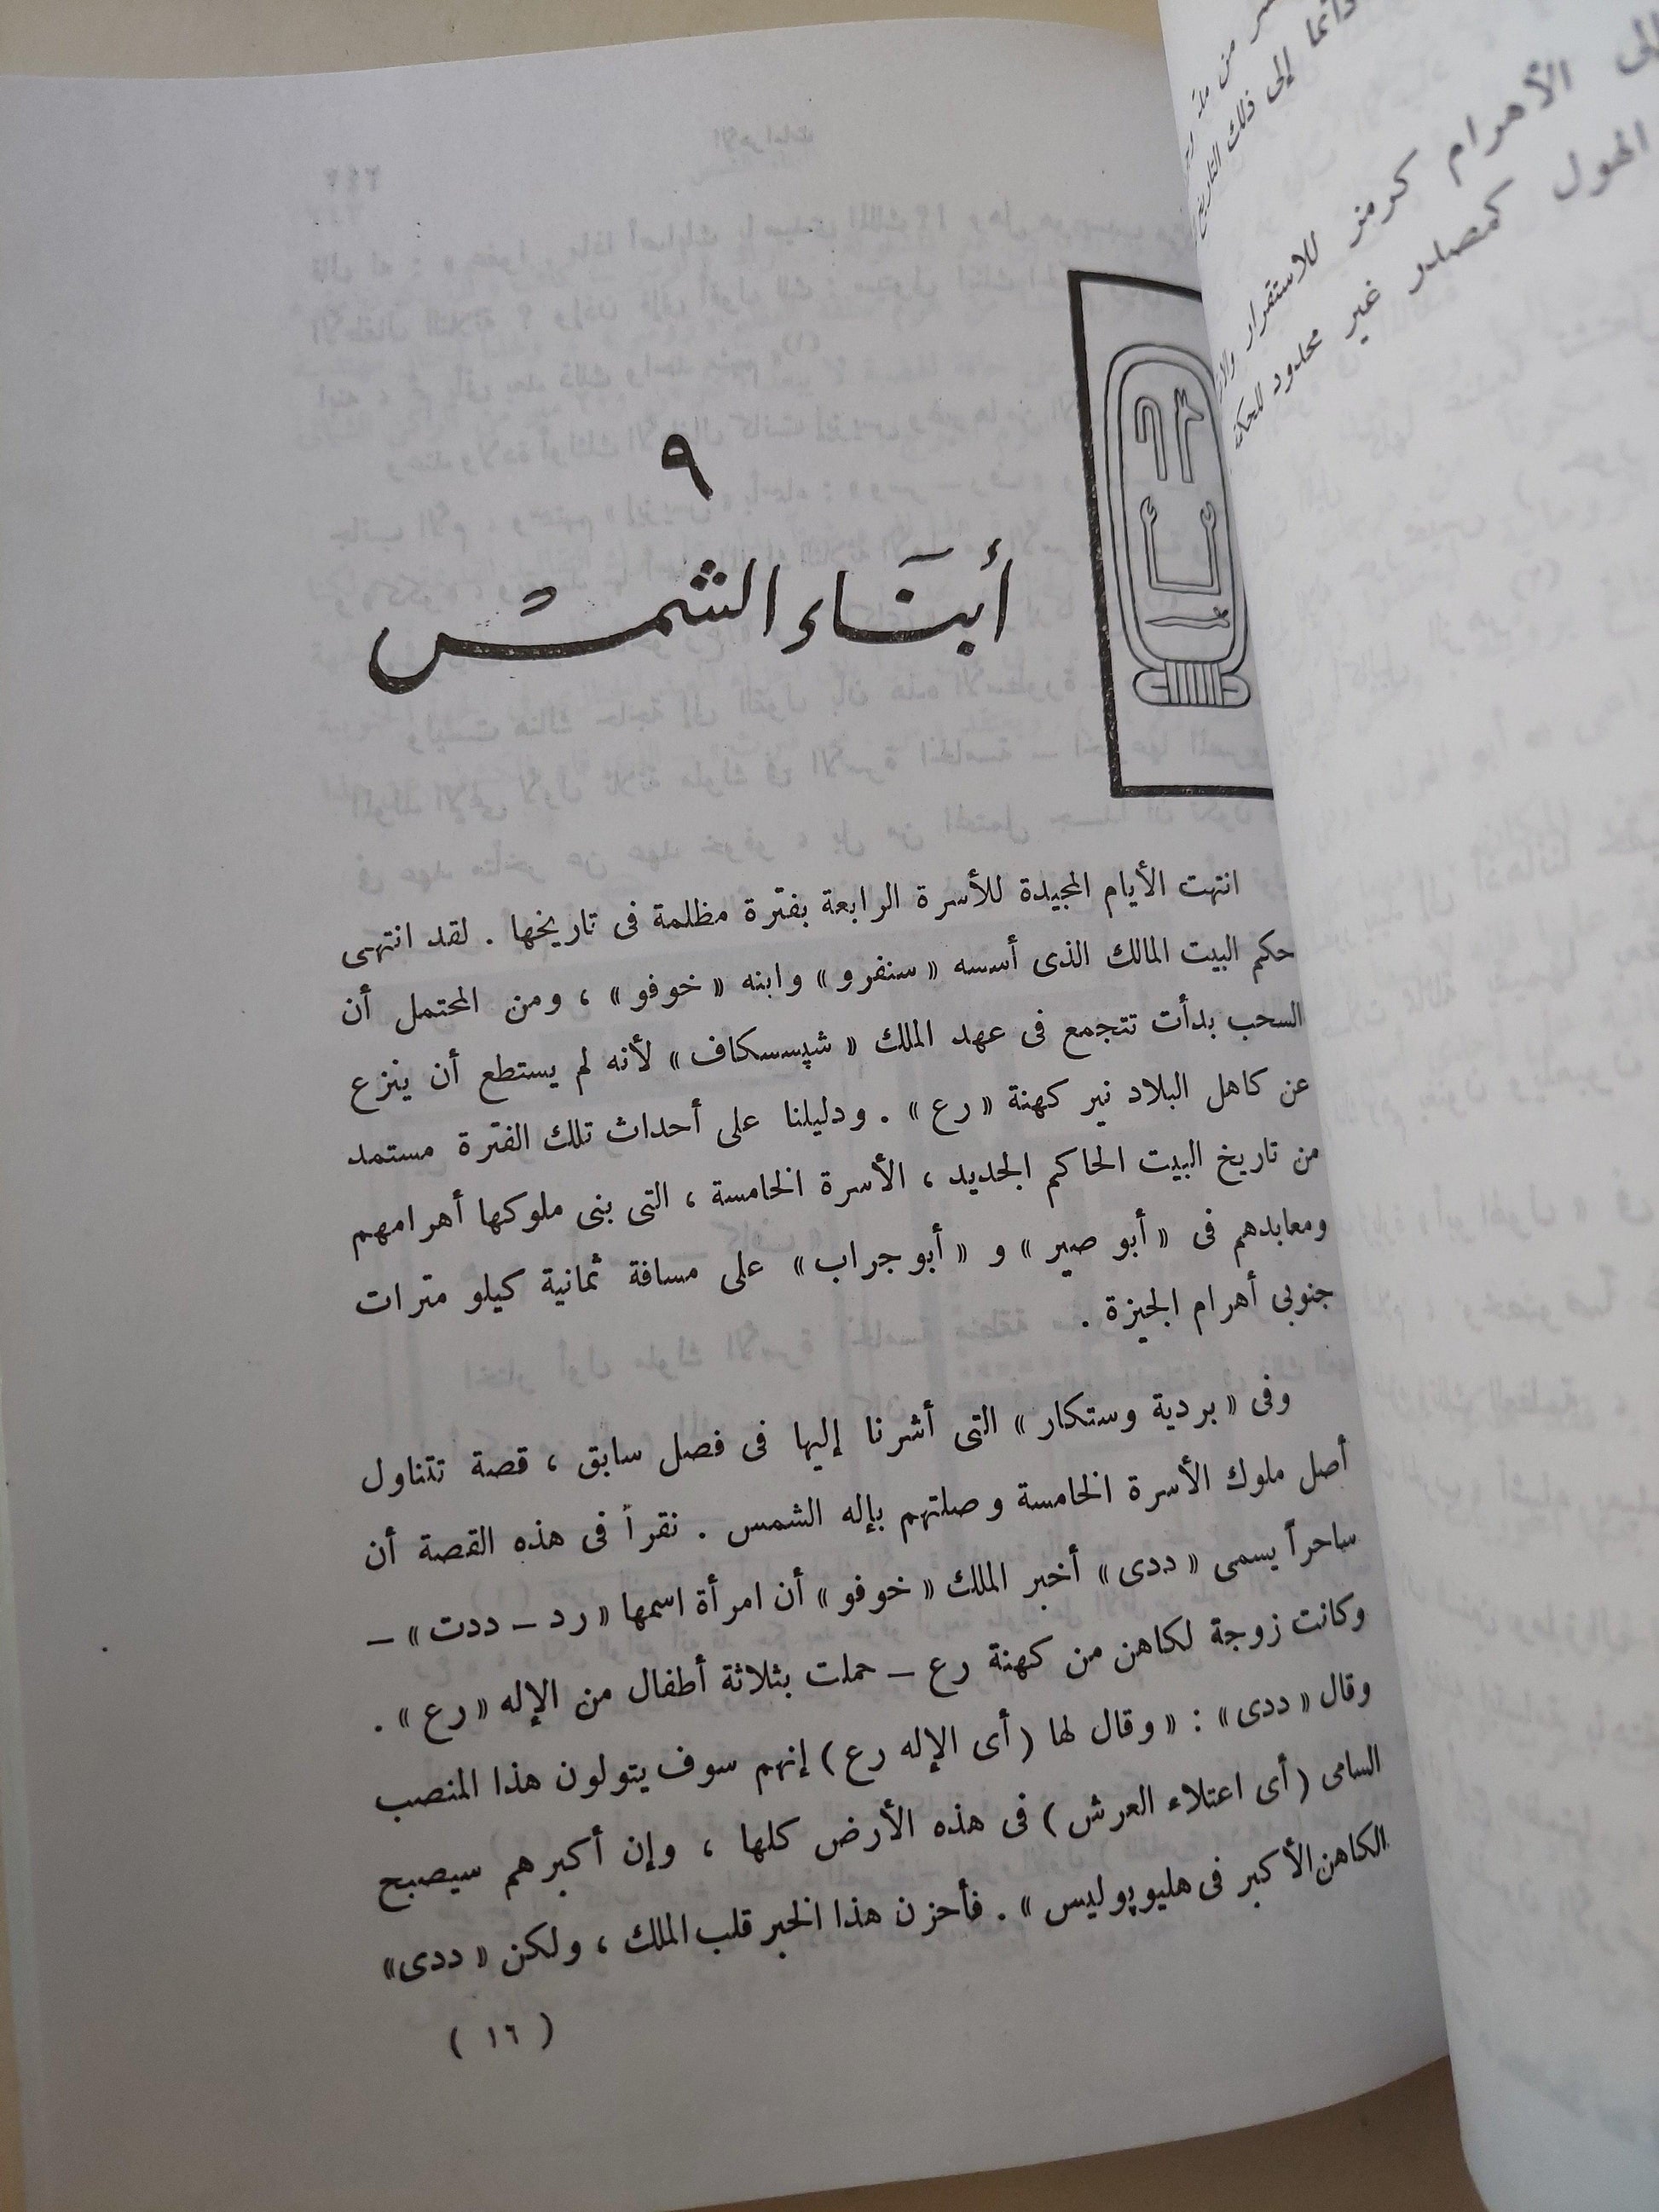 ٩
أبناء الشمس
انتهت الأيام المجيدة للأسرة الرابعة بفترة مظلمة فى تاريخها . لقد انتهى
حكم البيت المالك الذى أسسه « سنفرو » وابنه « خوفو » ، ومن المحتمل أن
السحب بدأت تتجمع فى عهد الملك « شپسسكاف » لأنه لم يستطع أن ينزع
عن كاهل البلاد نير كهنة « رع » . ودليلنا على أحداث تلك الفترة مستمد
من تاريخ البيت الحاكم الجديد ، الأسرة الخامسة ، التى بنى ملوكها أهرامهم
ومعابدهم فى « أبو صير » و « أبو جراب » على مسافة ثمانية كيلو مترات
جنوبى أهرام الجيزة .
وفى « بردية وستكار » التى أشرنا إليها فى فصل سابق ، قصة تتناول
أصل ملوك الأسرة الخامسة وصلتهم بإله الشمس . نقرأ فى هذه القصة أن
ساحراً يسمى « ددى » أخبر الملك « خوفو » أن امرأة اسمها « رد – ددت » –
وكانت زوجة لكاهن من كهنة رع – حملت بثلاثة أطفال من الإله « رع » .
وقال « ددى » : « وقال لها ( أى الإله رع ) إنهم سوف يتولون هذا المنصب
السامى ( أى اعتلاء العرش ) فى هذه الأرض كلها ، وإن أكبرهم سيصبح
الكاهن الأكبر فى هليوپوليس » . فأحزن هذا الخبر قلب الملك ، ولكن « ددى »
( ١٦ )
دائما إلى ذلك التاريخ
الأهرام كرمز للاستقرار
الهول كمصدر غير محدود